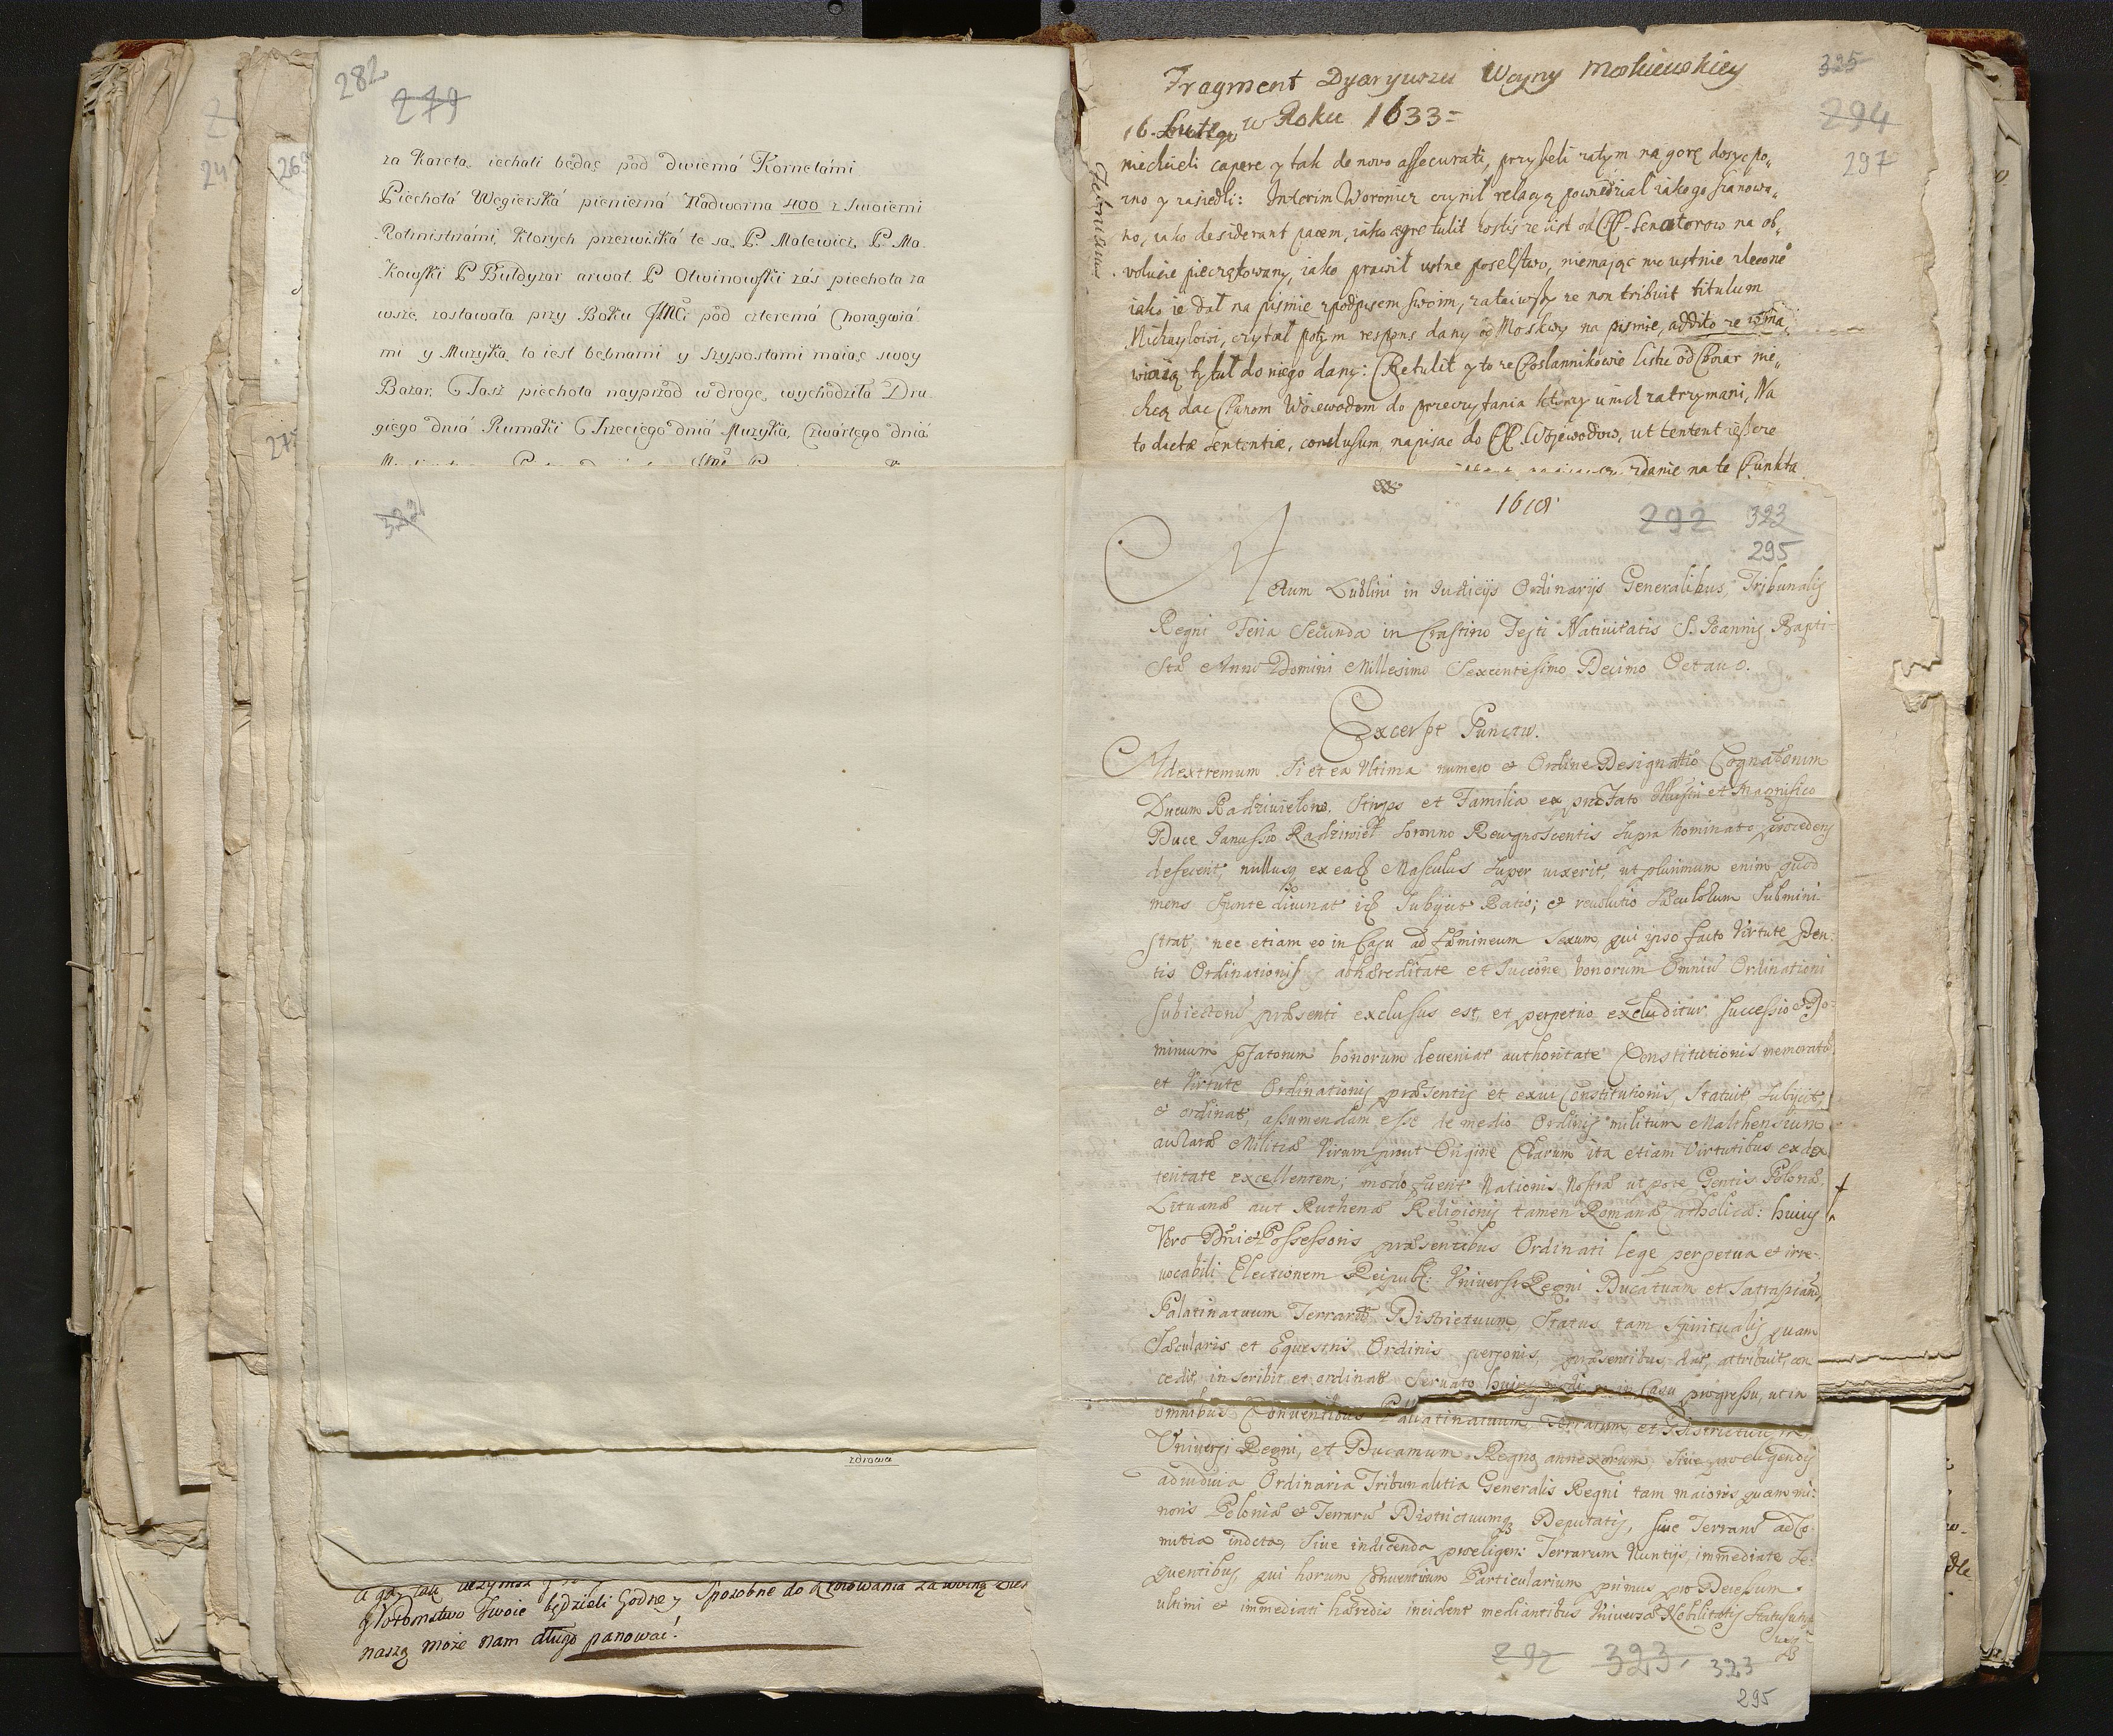 282
279
za Karetą iechali będąc pod dwiemá Kornetámi
Piechotá Węgierská pieniężná Nadworna 400 z Swoiemi
Rotmistrzámi, ktorych przezwiská te są, P. Malewicz, P. Ma-
kowski P Buldyzar arwat. P Otwinowski záś piechota za
wsze zostawała przy Boku JMCi pod czteremá Chorągwiá
mi y Muzyką to iest bębnami y szyposzami maiąc swoy
Bazar, Taż piechota nayprzod w drogę wychodziła Dru-
giego dniá Rumaki Trzeciego dniá Muzyka, Czwartego dniá
322
zdrowa
y Potomstwo Twoie będzieli Godne y Sposobne do
naszą może nam długo panować!
Fragment Dyaryuszu Woyny Moskiewskiey
w Roku 1633=
16. Lutego
325
294
297
niechcieli capere y tak de novo assecurati, przyszli zatym na gorę dosyc po-
zno y zasiedli: Interim Woronicz czynił relacyą powiedział iako go szanowa-
no, iako desiderant pacem, iako ægre tulit hostis ze list od PP. Senatorow na ob-
volucie pieczętowany, iako prawił ustne poselstwo, niemając nic ustnie zlecone
iako ie dał na pismie zpodpisem swoim, zataiwszy ze non tribuit titulum
Michayłowi, czytał potym respons dany od Moskwy na pismie, addito ze
tytuł do niego dany: Retulit y to ze Posłannikowie listu od Boiar nie-
chcą dac Panom Woiewodom do przeczytania ktory unich zatrzymani, Na
to dictæ sententiæ, conclusum, napisac do PP. Wojewodow, ut tentent ieszcze
zdanie na te Punkta
1618
292 323
295
Actum Lublini in Iudicijs Ordinarijs Generalibus Tribunalis
Regni Feria Secunda in Crastino Festi Nativitatis S. Ioannis Bapti-
stæ Anno Domini Millesimo Sexcentesimo Decimo Octavo.
Excerpt Punctu.
Ad extremum Si et ea Vltima numero et Ordine Designatio Cognatorum
Ducum Radziviłlonu. Stirps et Familia ex præfato Illustri et Magnifico
Duce Ianussio Radziwił Sororino Recognoscentis supra nominato procedens
defecerit, nullusq ex eadem Masculus super vixerit, ut plurimum enim quod
mens Sponte divinat id Subijcit Ratio; et revolutio Sæculorum Submini-
strat, nec etiam eo in Casu ad fæmineum Sexum, qui ipso facto Virtute pñen-
tis Ordinationis ab hæreditate et Succeone bonorum Omniu Ordinationi
subiectoru præsenti exclusus est, et perpetuo excluditur, successio et Do-
minium pfatorum bonorum deveniat authoritate Constitutionis memoratæ
et Virtute Ordinationis præsentis et ex vi Constitutionis, Statuit subijcit,
et ordinat, assumendam esse de medio Ordinis militum Malthensium
auratæ Militiæ Virum prout Origine Clarum ita etiam Virtutibus ex dex
teritate excellentem; modo fuerit Nationis Nostræ ut pote Gentis Polonæ,
Lituanæ aut Ruthenæ Religionis tamen Romanæ Catholicæ: huius
Vero Dñi et Possessoris præsentibus Ordinati lege perpetua et irre-
vocabili Electionem Reipub: Vniversi Regni Ducatuum et Satrapiaru,
Palatinatuum Terraru Districtuum, Status tam Spiritualis quam
Sæcularis et Equestris Ordinis personis, præsentibus dat, attribuit, con
cedit, inscribit et ordinat Servato huius modi in Casu progressu, ut in
omnibus Conventibus Pallatinatuum, Terrarum, et Districtuum,
Universi Regni, et Ducatuum Regno annexorum, Sive pro eligendis
ad iudicia Ordinaria Tribunalitia Generalis Regni tam maioris quam mi-
noris Poloniæ et Terraru Districtuumq Deputatis, sive Terraru ad Co-
mitia indicta, Sive indicenda pro eligen: Terrarum Nuntijs, immediate se-
quentibus qui horum Conventuum Particularium primus pro Decessum
ultimi et immediati hæredis incident mediantibus Vniversæ Nobilitatis
292 323. 323
295